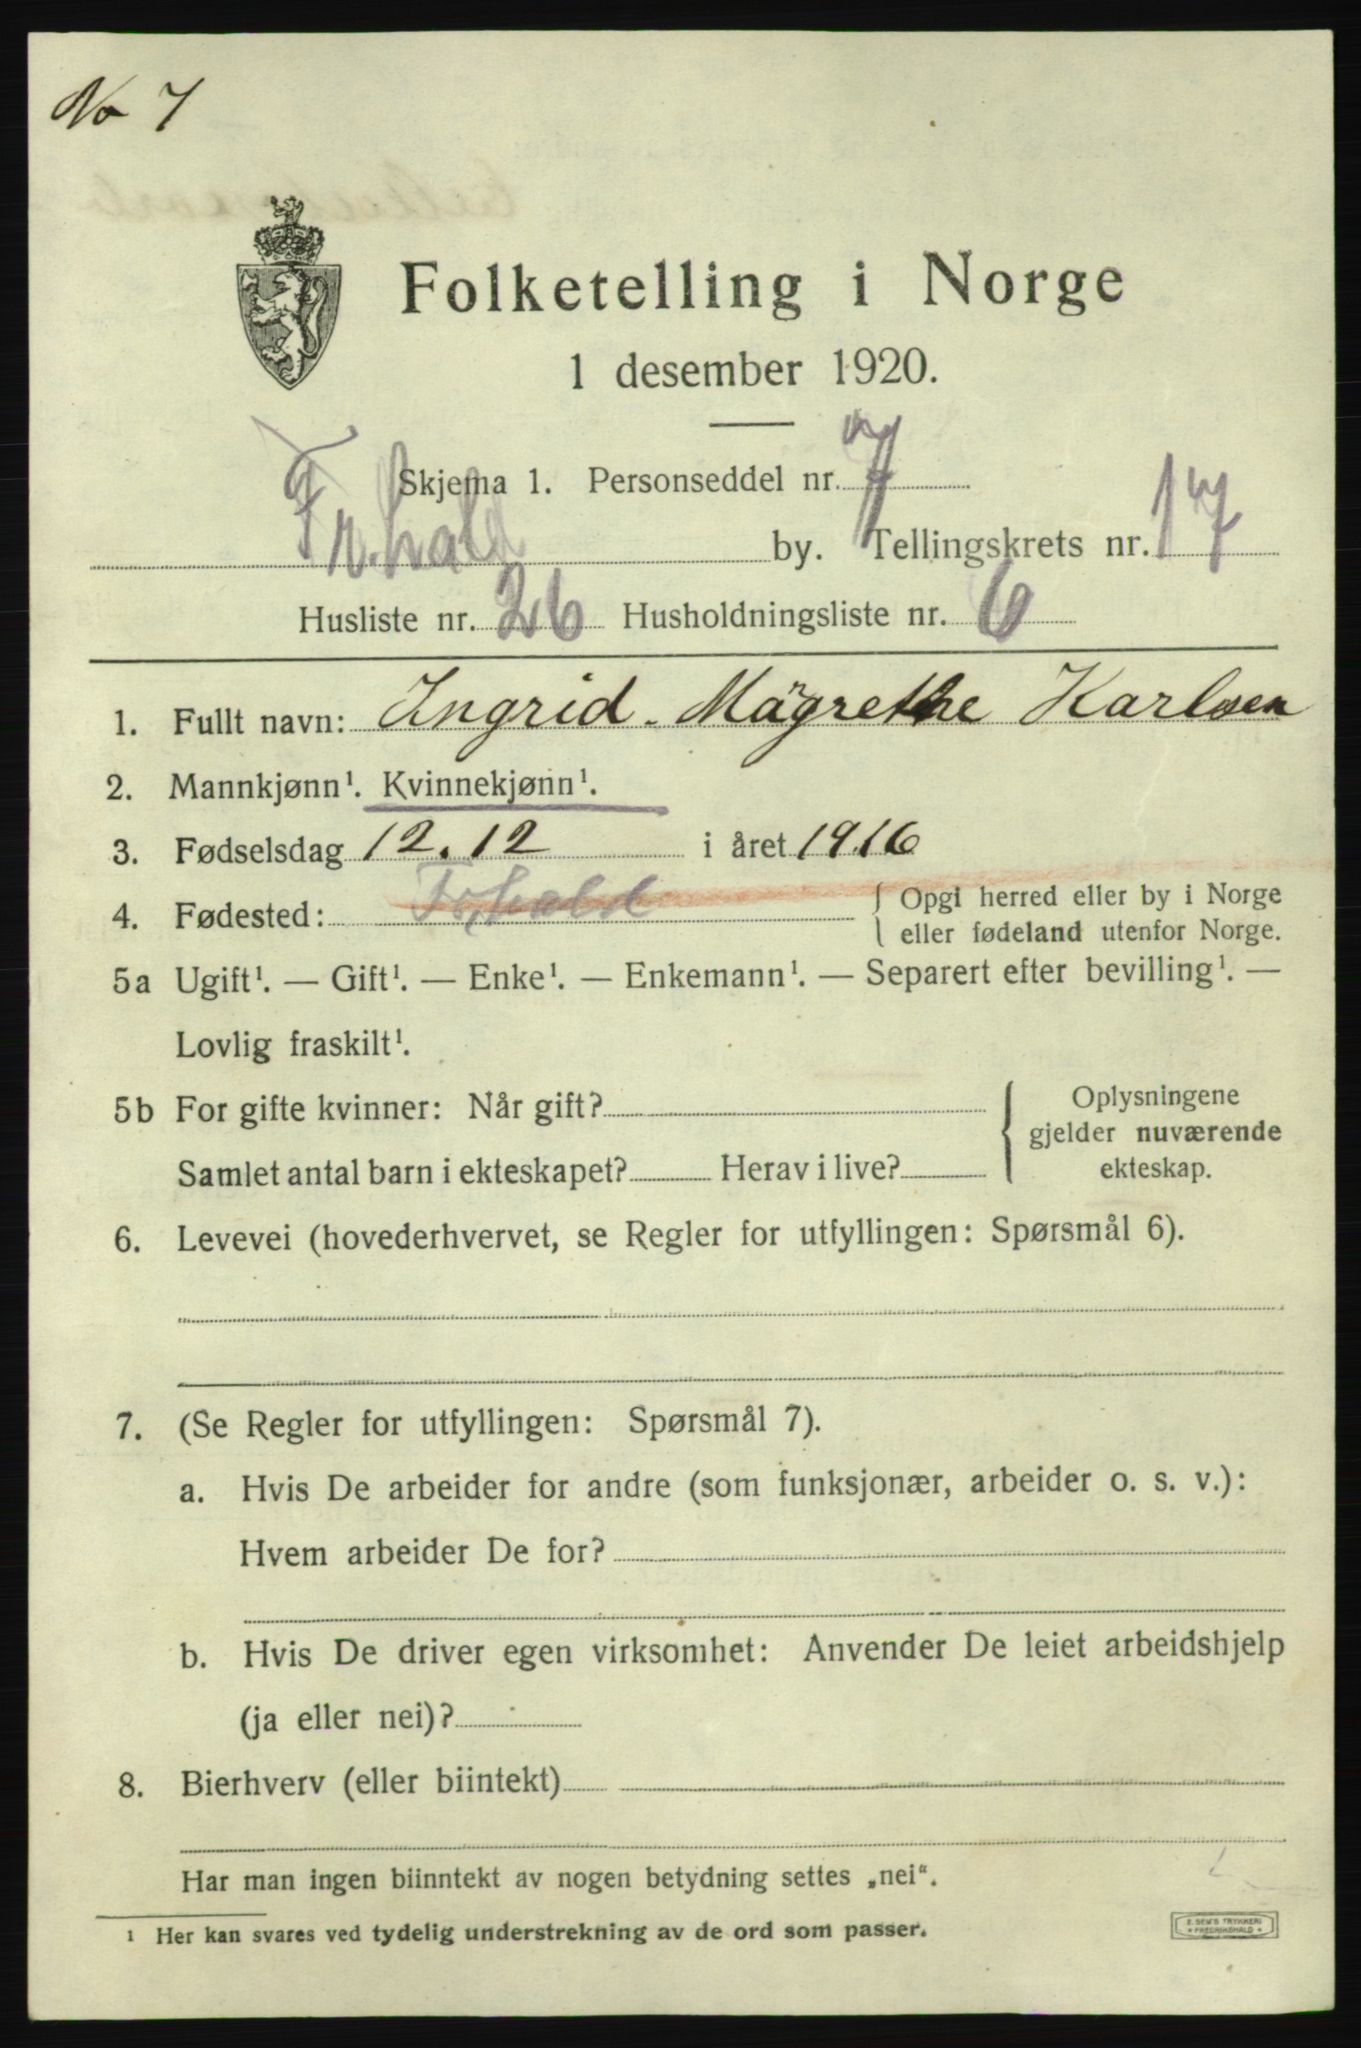 No 7
Folketelling i Norge
1 desember 1920.
Skjema 1. Personseddel nr. 7
Fr.hald by. Tellingskrets nr. 17
Husliste nr. 26 Husholdningsliste nr. 6
1. Fullt navn: Ingrid Margrethe Karlsen
2. Mannkjønn¹. Kvinnekjønn¹.
3. Fødselsdag 12.12 i året 1916
4. Fødested: Fr.hald { Opgi herred eller by i Norge
eller fødeland utenfor Norge.
5a Ugift¹. — Gift¹. — Enke¹. — Enkemann¹. — Separert efter bevilling¹. —
Lovlig fraskilt¹.
5b For gifte kvinner: Når gift? { Oplysningene
gjelder nuværende
Samlet antal barn i ekteskapet? Herav i live? ekteskap.
6. Levevei (hovederhvervet, se Regler for utfyllingen: Spørsmål 6).
7. (Se Regler for utfyllingen: Spørsmål 7).
a. Hvis De arbeider for andre (som funksjonær, arbeider o. s. v.):
Hvem arbeider De for?
b. Hvis De driver egen virksomhet: Anvender De leiet arbeidshjelp
(ja eller nei)?
8. Bierhverv (eller biintekt)
Har man ingen biinntekt av nogen betydning settes „nei“.
¹ Her kan svares ved tydelig understrekning av de ord som passer.
E. SEM'S TRYKKERI
* FREDRIKSHALD *